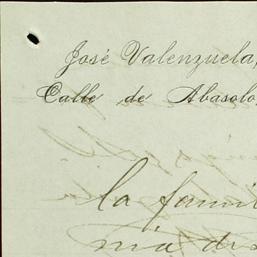 José Valenzuela,
Calle de Abasolo,
la famil
nia dis